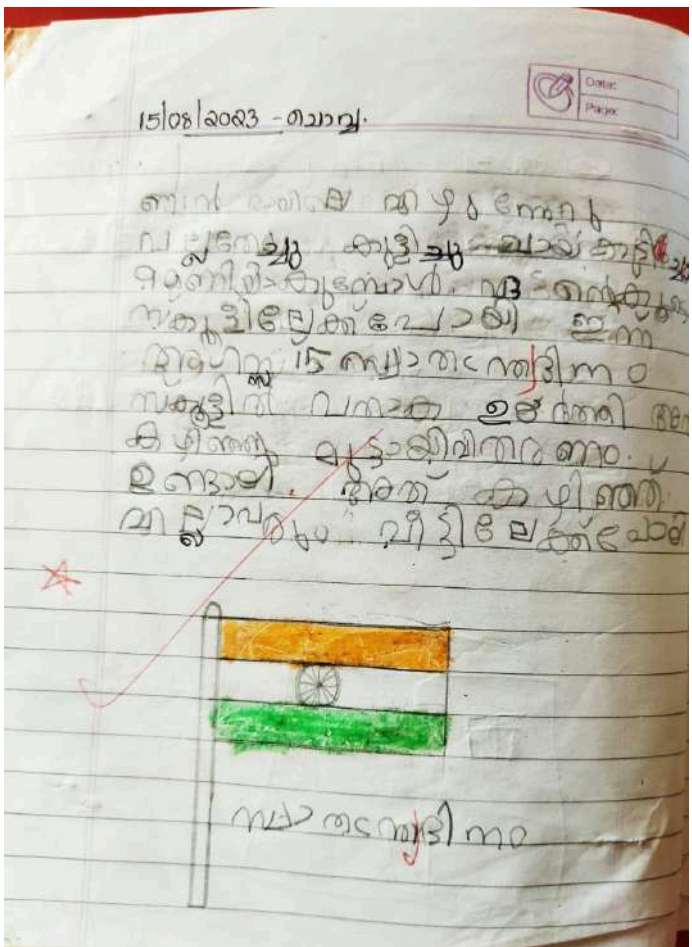 Date:
Page:
15/08/2023 - ചൊവ്വ.
ഞാൻ രാവിലെ എഴുന്നേറ്റു
പല്ലുതേച്ചു കുളിച്ചു ചായ കുടിച്ചു
മണിയാകുമ്പോൾ
സ്കൂളിലേക്ക് പോയി ഇന്ന്
ആഗസ്ത് 15 സ്വാതന്ത്ര്യദിനം
സ്കൂളിൽ പതാക ഉയർത്തി
കഴിഞ്ഞു മുട്ടായിവിതരണം.
ഉണ്ടായി. അത് കഴിഞ്ഞ്
എല്ലാവരും വീട്ടിലേക്ക് പോയി
സ്വാതന്ത്ര്യദിനം